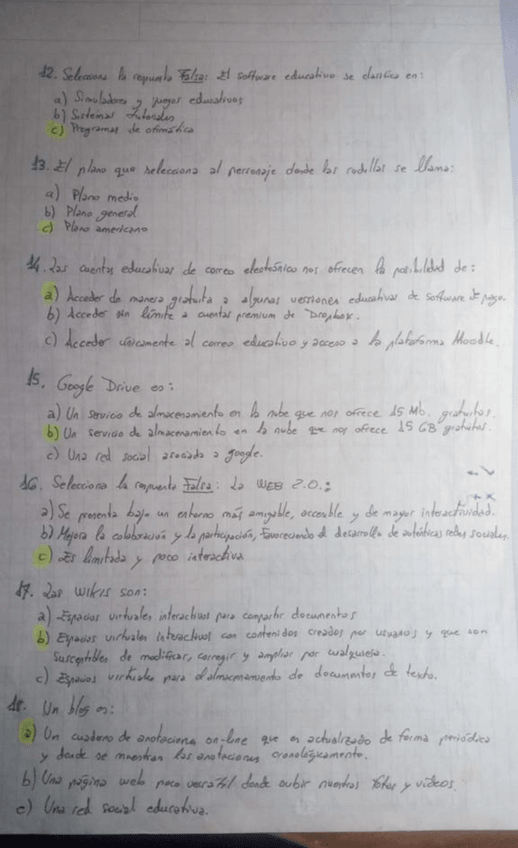 12. Selecciona la repuesta Falsa: El software educativo se clasifica en:
a) Simuladores y juegos educativos
b) Sistemas tutoriales
c) Programas de ofimática
13. El plano que selecciona al personaje desde las rodillas se llama:
a) Plano medio
b) Plano general
c) Plano americano
14. Las cuentas educativas de correo electrónico nos ofrecen la posibilidad de:
a) Acceder de manera gratuita a algunas versiones educativas de software de pago.
b) Acceder sin límite a cuentas premium de Dropbox.
c) Acceder únicamente al correo educativo y acceso a la plataforma Moodle.
15. Google Drive es:
a) Un servicio de almacenamiento en la nube que nos ofrece 15 Mb. gratuitos.
b) Un servicio de almacenamiento en la nube que nos ofrece 15 GB gratuitos.
c) Una red social asociada a google.
16. Selecciona la repuesta Falsa: La WEB 2.0.:
a) Se presenta bajo un entorno más amigable, accesible y de mayor interactividad.
b) Mejora la colaboración y la participación, favoreciendo el desarrollo de auténticas redes sociales.
c) Es limitada y poco interactiva
17. Las wikis son:
a) Espacios virtuales interactivos para compartir documentos
b) Espacios virtuales interactivos con contenidos creados por usuarios y que son
susceptibles de modificar, corregir y ampliar por cualquiera.
c) Espacios virtuales para el almacenamiento de documentos de texto.
18. Un blog es:
a) Un cuaderno de anotaciones on-line que es actualizado de forma periódica
y donde se muestran las anotaciones cronológicamente.
b) Una página web poco versátil donde subir nuestras fotos y vídeos.
c) Una red social educativa.